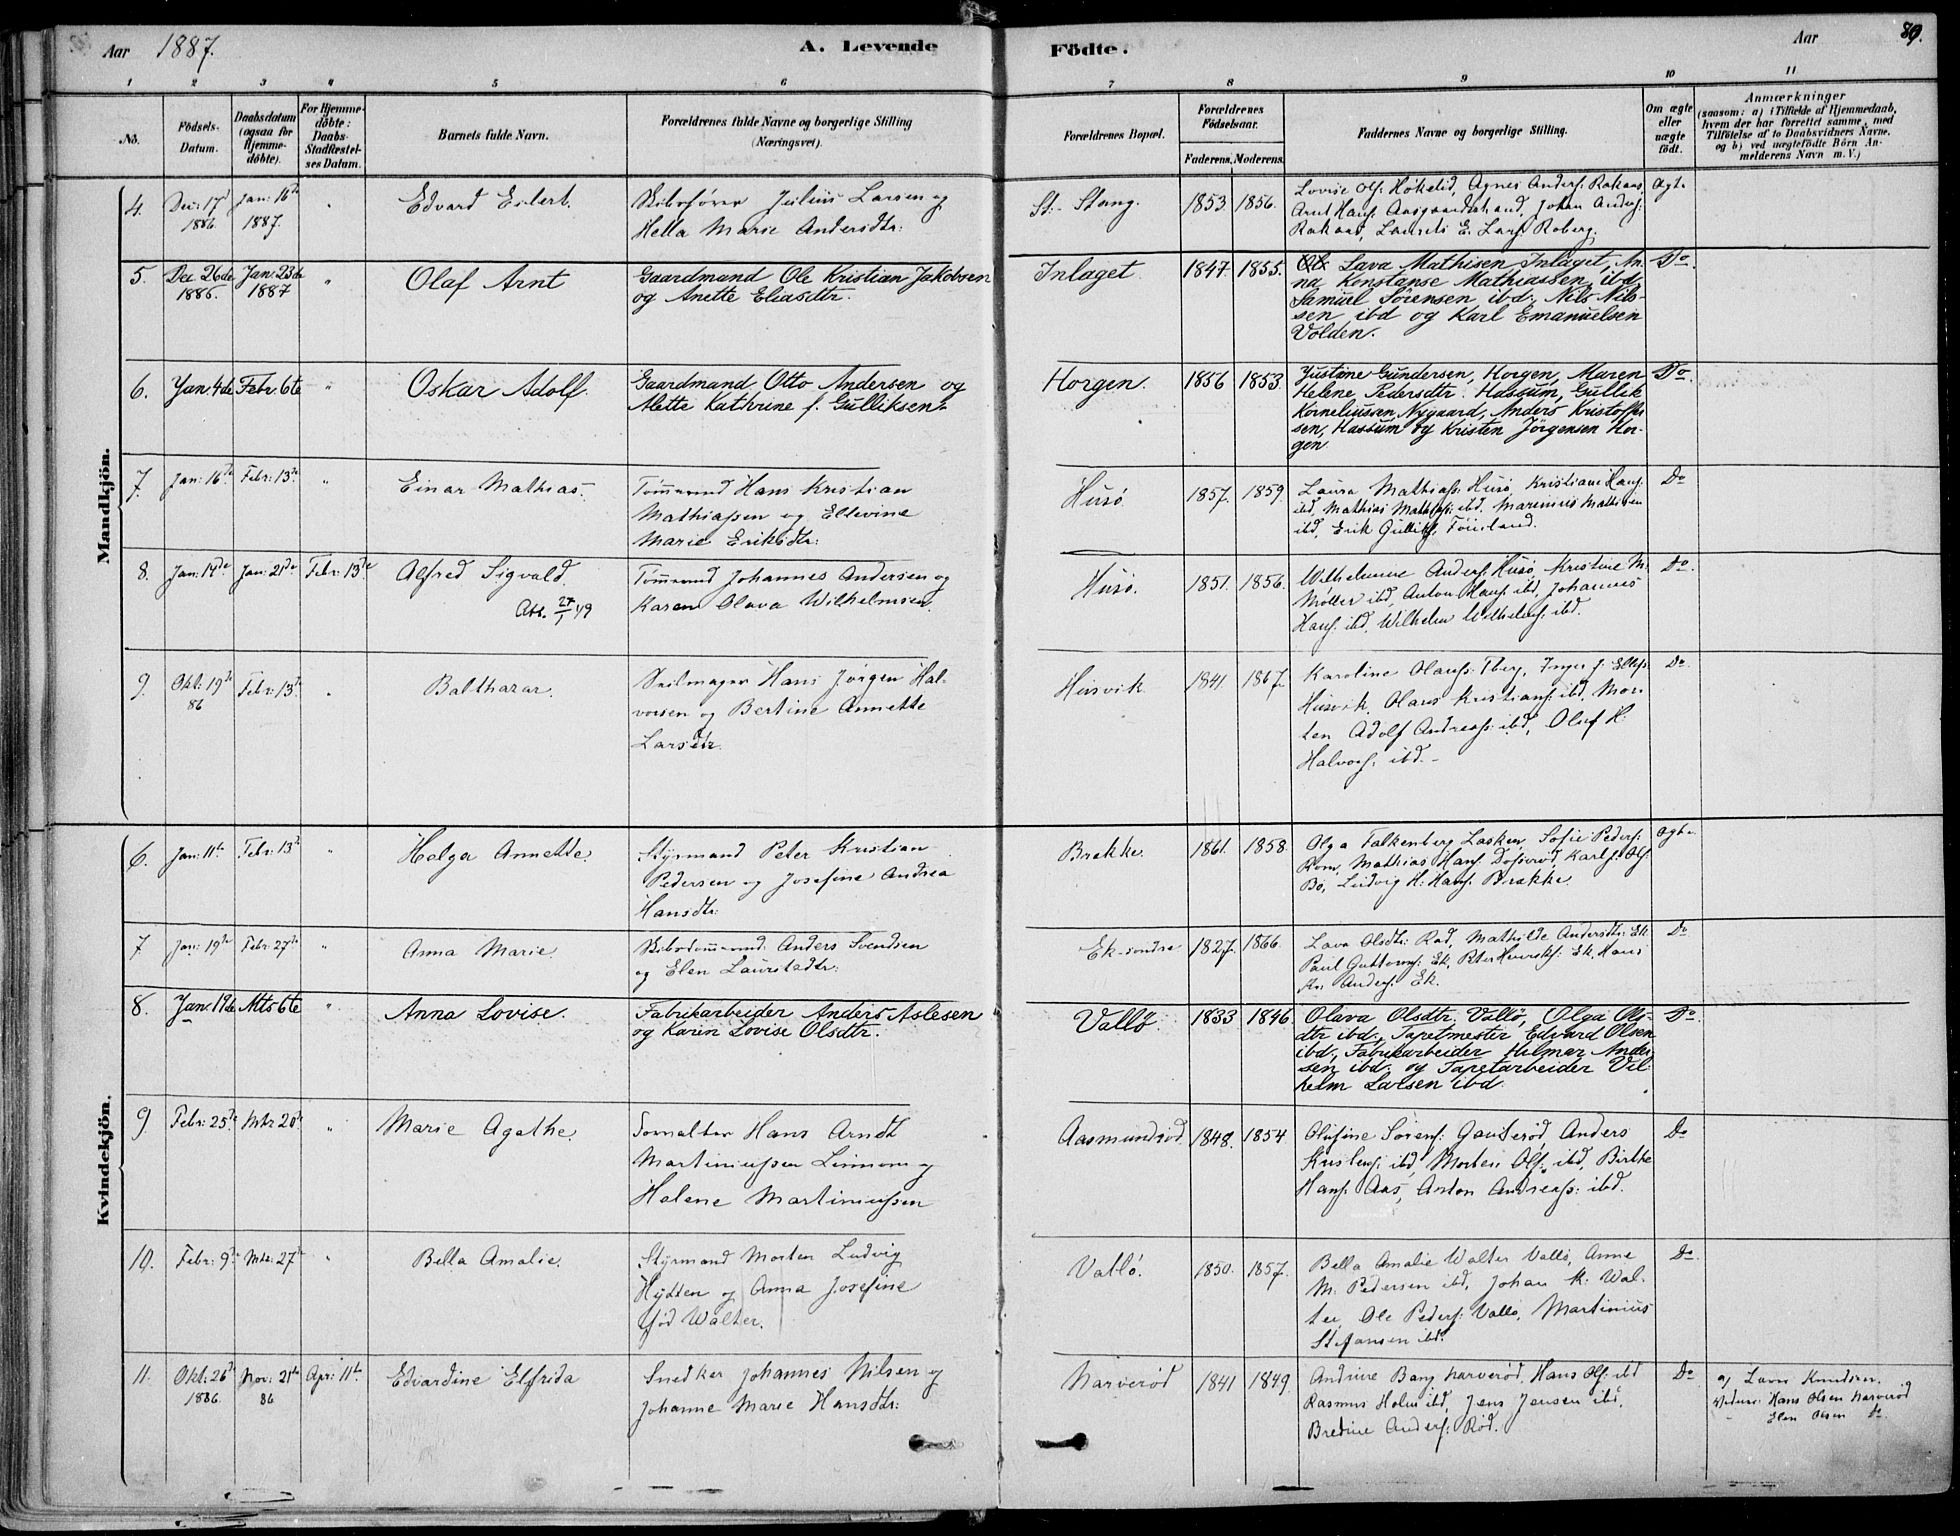 Aar 1887. A. Levende Födte. Aar 89.
1 2 3 4 5 6 7 8 9 10 11
No.
Födsels-Datum.
Daabsdatum (ogsaa for Hjemme-döbte).
For Hjemme-döbte: Daabs-Stadfæstel-ses Datum.
Barnets fulde Navn.
Forældrenes fulde Navne og borgerlige Stilling
(Næringsvei).
Forældrenes Bopæl.
Forældrenes Födselsaar.
Faderens. Moderens.
Faddernes Navne og borgerlige Stilling.
Om ægte eller uægte födt.
Anmærkninger
(saasom: a) i Tilfælde af Hjemmedaab, hvem der har forrettet samme, med Tilföielse af to Daabsvidners Navne. og b) ved uægtefödte Börn Anmelderens Navn m. V.)
Mandkjön.
4. Dec: 17d 1886 Jan: 16de 1887. " Edvard Eilert.
Skibsfører Julius Larsen og
Hella Marie Andersdtr:
St. Stang. 1853. 1856.
Lovise Ols: Høkelid, Agnes Anders: Rakaas,
Arnt Hans: Aasgaardstrand, Johan Anders:
Rakaas, Laurits E. Lars: Roberg.
Ægte
5. Dec 26de 1886. Jan. 23de 1887 " Olaf Arnt
Gaardmand Ole Kristian Jakobsen
og Anette Eliasdtr.
Inlaget. 1847. 1855.
Lava Mathisen Inlaget, An-
na Konstanse Mathiassen ibd,
Samuel Sörensen ibd, Nils Nils-
sen ibd og Karl Emanuelsen
Volden.
Do.
6. Jan. 4de Febr. 6te " Oskar Adolf.
Gaardmand Otto Andersen og
Alette Kathrine f. Gulliksen.
Horgen. 1856 1853.
Justine Gundersen, Horgen, Maren
Helene Pedersdtr. Hassum, Gullik
Korneliussen Nygaard, Anders Kristoffer-
sen, Hassum og Kristen Jörgensen Hor-
gen
Do.
7. Jan: 16de Febr: 13de " Einar Mathias.
Tømmermd Hans Kristian
Mathiassen og Ellevine
Marie Eriksdtr:
Husø. 1857. 1859.
Laura Mathiass: Husø, Kristiane Hans:
ibd, Mathias Mathiss: ibd, Marenius Mathisen
ibd, Erik Gulliks:
Do
8. Jan: 14de Jan: 21de Febr: 13de Alfred Sigvald.
Att. 27/1 49
Tømmermd Johannes Andersen og
Karen Olava Wilhelmsen.
Husø. 1851. 1856.
Wilhelmine Anders: Husø, Kristine M.
Møller ibd, Anton Hans: ibd, Johannes
Hans: ibd, Wilhelm Wilhelms: ibd.
Do.
9. Okt: 19de 86 Febr: 13de " Balthazar.
Seilmager Hans Jørgen Hal-
vorsen og Bertine Annette
Larsdtr.
Husvik. 1841. 1867.
Karoline Olaus: Berg, Inger f. Ellefs:
Husvik, Olaus Kristians: ibd. Mor-
ten Adolf Andreass: ibd, Oluf H.
Halvors: ibd.
Do
Kvindekjön.
6. Jan: 11te Febr: 13de " Helga Annette.
Styrmand Peter Kristian
Pedersen og Josefine Andrea
Hansdtr:
Brække. 1861. 1858.
Olga Falkenberg Lasken, Sofie Peders:
Rom, Mathias Hans: Karl f. Ols:
Bø, Ludvig H: Hans: Brække.
Ægte
7 Jan: 19de Febr: 27de " Anna Marie.
Skibstømmermd: Anders Svendsen
og Elen Lauritsdtr:
Ek-søndre 1827. 1866.
Lava Olsdtr: Rød, Mathilde Andersdtr: Ek
Paul Guttorms: Ek, Peter Ek, Hans
Kr: Anders: Ek.
Do
8. Jan. 19de Mts 6te " Anna Lovise.
Fabrikarbeider Anders Aslesen
og Karen Lovise Olsdtr.
Vallø 1833 1846.
Olava Olsdtr. Vallø, Olga Ols-
dtr ibd., Tapetmester Edvard Olsen
ibd., Fabrikarbeider Hilmar Ander-
sen ibd. og Tapetarbeider Vil-
helm Larsen ibd.
Do.
9 Febr: 25de Mts 20de " Marie Agathe.
Hans Arndt
Martiniussen Linnom og
Helene Martiniussen
Aasmundrød. 1848. 1854.
Olufine Sørens: Gauterød, Anders
Kristens: ibd, Morten Ols: ibd, Birthe
Hans: Aas, Anton Andreass: ibd.
Do
10. Febr: 9de Mts: 27de " Bella Amalie.
Styrmand Morten Ludvig
Hytten og Anna Josefine
fød Walter.
Vallø. 1850. 1857.
Bella Amalie Walter Vallø, Anne
M. Pedersen ibd, Johan K. Wal-
ter, Ole Peders: Vallø, Martinius
Stefansen ibd.
Do
11. Okt: 26de 1886. Nov: 21de 86 Apr: 11te Edvardine Elfrida
Snedker Johannes Nilsen og
Johanne Marie Hansdtr:
Narverød 1841 1849.
Andrine Bang Narverød, Hans Ols: ibd
Rasmus Holm ibd, Jens Jensen ibd,
Bredine Anders: Rød.
Do
a) Lovise Knudsen.
Vidner: Hans Olsen Narverød og
Elen Olsen do